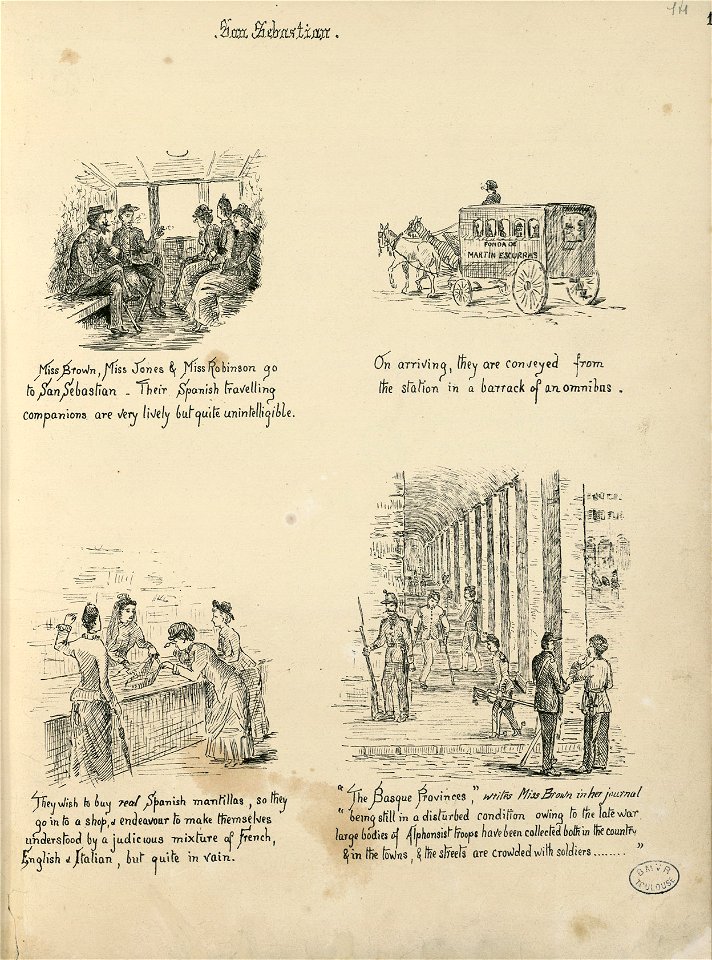 . San Sebastian .
FONDA DE
MARTIN ESCURRAS
Miss Brown, Miss Jones & Miss Robinson go
to San Sebastian - Their Spanish travelling
companions are very lively but quite unintelligible.
On arriving, they are conveyed from
the station in a barrack of an omnibus .
They wish to buy real Spanish mantillas, so they
go in to a shop, & endeavour to make themselves
understood by a judicious mixture of French,
English & Italian, but quite in vain.
"The Basque Provinces," writes Miss Brown in her journal
"being still in a disturbed condition owing to the late war
large bodies of Alphonsist troops have been collected both in the country
& in the towns, & the streets are crowded with soldiers ........"
B.M.V.R.
TOULOUSE